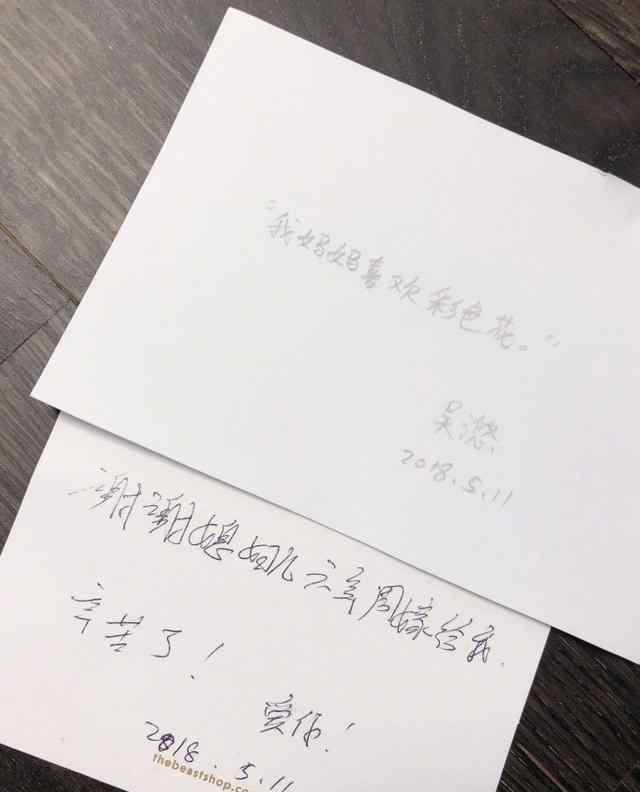 “我妈妈喜欢彩色花。”
吴滺
2018.5.11
谢谢媳妇儿六年周嫁给我.
辛苦了!
爱你!
2018.5.11
thebeastshop.co